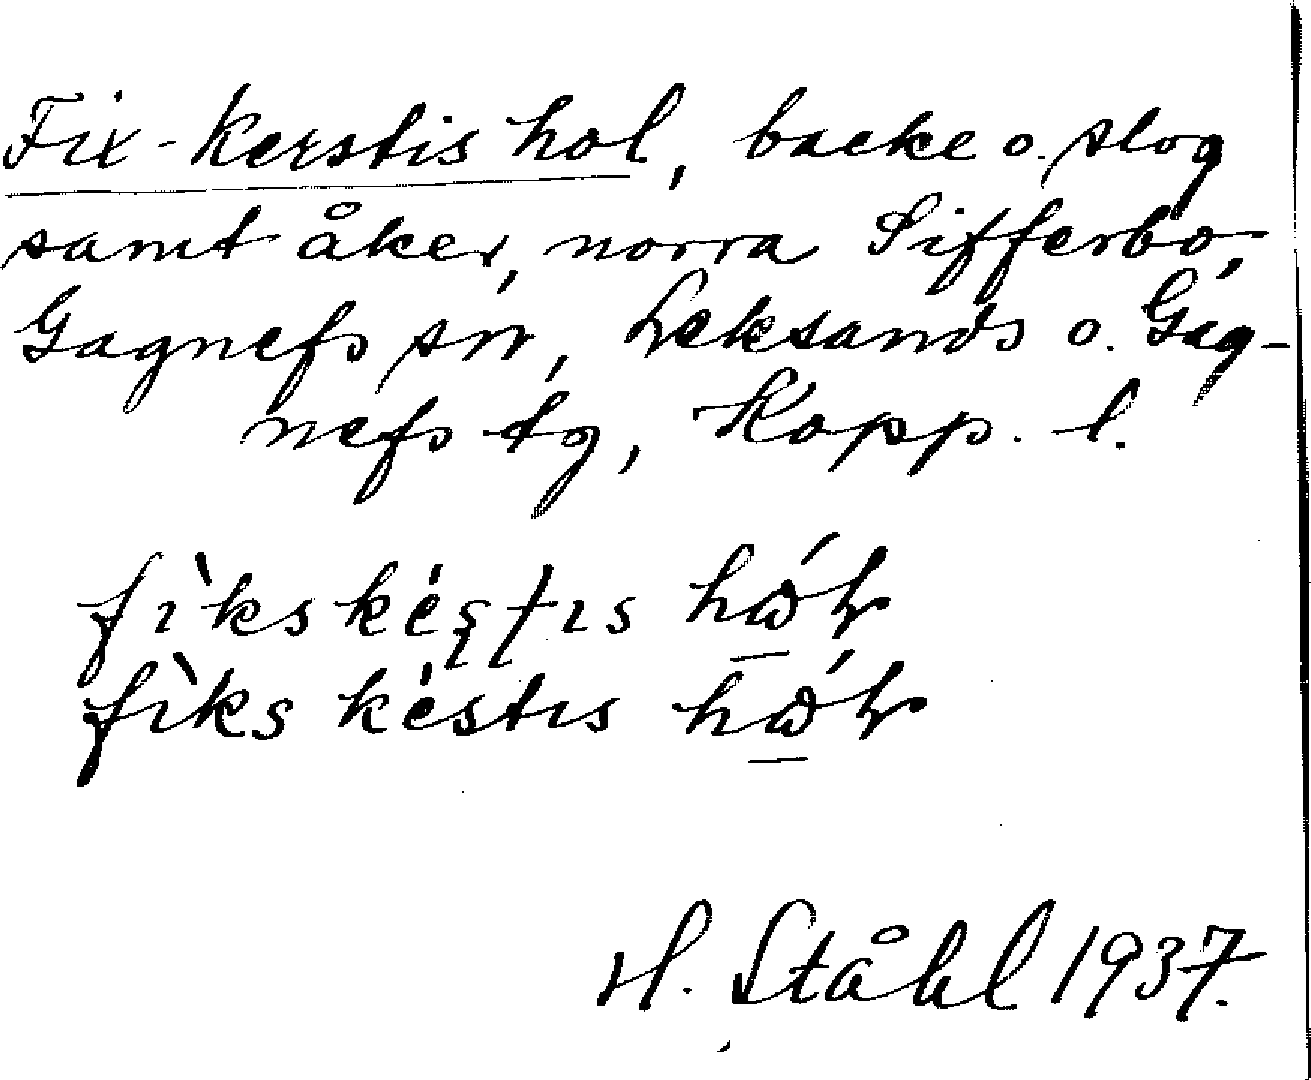 Fix-Kerstis hol, backe o. slog
samt åker, norra Sifferbo,
Gagnefs sn, Leksands o. Gag-
nefs tg, Kopp. l.
fìks kestis
fìks késtis
H. Ståhl 1937.